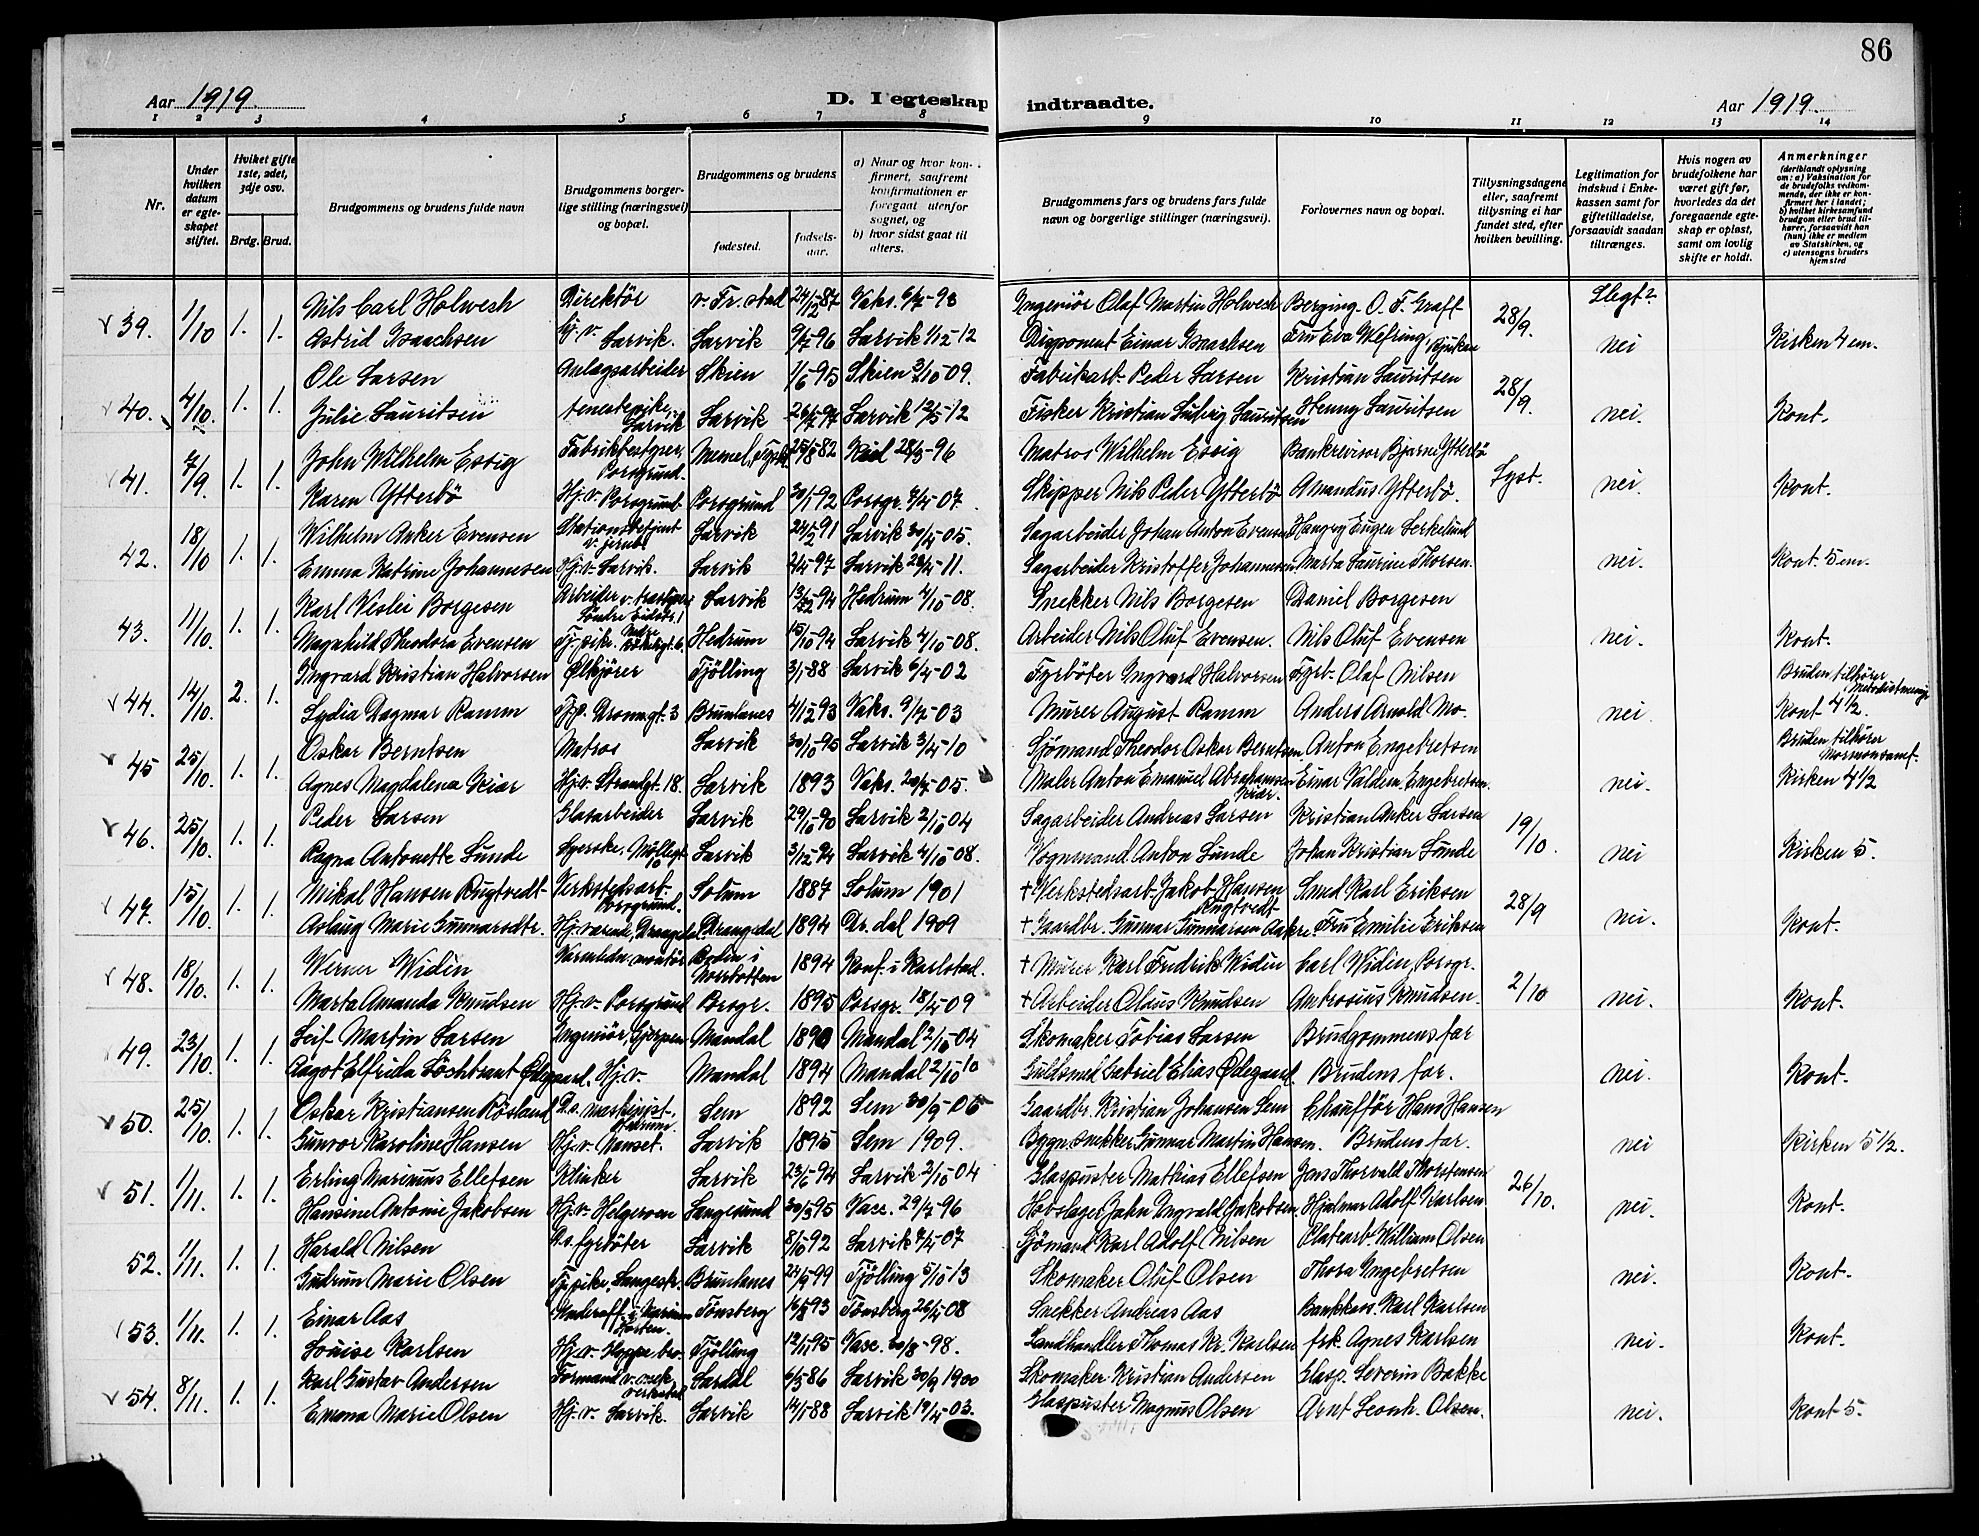 86
Aar 1919.
D. I egteskap indtraadte.
Aar 1919.
1 2 3 4 5 6 7 8 9 10 11 12 13 14
Nr.
Under hvilken datum er egteskapet stiftet.
Hvilket gifte 1ste, 2det, 3dje osv.
Brdg. Brud.
Brudgommens og brudens fulde navn
Brudgommens borgerlige stilling (næringsvei) og bopæl.
Brudgommens og brudens
fødested. fødselsaar.
a) Naar og hvor konfirmert, saafremt konfirmationen er foregaat utenfor sognet, og
b) hvor sidst gaat til alters.
Brudgommens fars og brudens fars fulde navn og borgerlige stillinger (næringsvei).
Forlovernes navn og bopæl.
Tillysningsdagene eller, saafremt tillysning ei har fundet sted, efter hvilken bevilling.
Legitimation for indskud i Enkekassen samt for giftetilladelse, forsaavidt saadan tiltrænges.
Hvis nogen av brudefolkene har været gift før, hvorledes da det foregaaende egteskap er opløst, samt om lovlig skifte er holdt.
Anmerkninger (deriblandt oplysning om: a) Vaksination for de brudefolks vedkommende, der ikke er konfirmert her i landet; b) hvilket kirkesamfund brudgom eller brud tilhører, forsaavidt han (hun) ikke er medlem av Statskirken, og c) utensogns bruders hjemsted
39. 1/10 1. 1. Nils Carl Holwech Direktör v. Fr.stad 24/12-87 Vaks. Ingeniör Olaf Martin Holwech 28/9.
Astrid Isaachsen Hj. v. Larvik. Larvik Larvik 1/12-12 Disponent Einar Isaachsen nei Kirken 4 em.
40. 4/10. 1. 1. Ole Larsen Anlægsarbeider Skien 1/6-95 Skien 3/10-09. Fabrikarb. Peder Larsen Kristian Lauritsen 28/9.
Julie Lauritsen tenestepike, Larvik Larvik Larvik 12/5-12 Fisker Kristian Ludvig Lauritsen Henny Lauritsen nei. Kont.
41. 7/9. 1. 1. John Wilhelm Essig Fabrikbestyrer, Porsgrund. Memel, Tyskl. 25/8 82 Kiel 28/3-96 Matros Wilhelm Essig Bankrevisor Bjarne Ytterbö Lyst.
Karen Ytterbö Hj. v. Porsgrund Porsgrund 30/1-92 Porsgr. 7/4-07. Skipper Nils Peder Ytterbö Amandus Ytterbö. nei. Kont.
42. 18/10 1. 1. Wilhelm Anker Evensen Stationsbetjent v. jernb. Larvik 24/2-91 Larvik 30/4-05. Sagarbeider Johan Anton Evensen
Emma Katrine Johannesen Hj. v. Larvik. Larvik 2/4-97 Larvik 28/4-11. Sagarbeider Kristoffer Johannesen Marta Laurine Thorsen. nei. Kont. 5 em.
43. 11/10. 1. 1. Karl Veslei Borgesen Arbeider Larvik 13/12-94 Hedrum 4/10-08. Snekker Nils Borgesen Daniel Borgesen
Magnhild Theodora Evensen Tj. pike. Hedrum 15/10-94 Larvik 4/10-08. Arbeider Nils Oluf Evensen. Nils Oluf Evensen nei. Kont.
44. 14/10. 2. 1. Ingvard Kristian Halvorsen Ölkjører Tjölling 3/1-88 Larvik 6/4-02 Fyrböter Ingvard Halvorsen Fyrb. Olaf Nilsen Bruden tilhører Metodistmenigh.
Lydia Dagmar Ramm Tjp. Dronngt. 3 Brunlanes 4/12-93 Vaks. 9/7-03 Murer August Ramm Anders Arnold Mo. nei. Kont 4 1/2.
45 25/10. 1. 1. Oskar Berntsen Matros Larvik 30/10-95 Larvik 3/4-10 Sjömand Theodor Oskar Berntsen Anton Engebretsen Bruden tilhører Mormonsamf.
Agnes Magdalena Kiær Hj. v. Strandgt. 18. Larvik 1893 Vaks. 20/7-05. Maler Anton Emanuel Abrahamsen Kiær. Einar Valdem. Engebretsen. nei. Kirken 4 1/2
46. 25/10. 1. 1. Peder Larsen Glasarbeider Larvik 29/10-90 Larvik 2/10-04 Sagarbeider Andreas Larsen Kristian Anker Larsen 19/10.
Ragna Antonette Lunde Syerske, Möllegt. 10 Larvik 3/12-94 Larvik 4/10-08. Vognmand. Anton Lunde Johan Kristian Lunde nei Kirken 5.
47. 15/10. 1. 1. Mikal Hansen Rugtvedt Verkstedsarb. Porsgrund. Solum 1887 Solum 1901 + Verkstedsarb. Jakob Hansen Rugtvedt Smed Karl Eriksen 28/9
Aslaug Marie Gunnarsdtr. Hj. værende, Drangedal Drangedal 1894 Dr.dal 1909 + Gaardbr. Gunnar Gunnarsen Aakre Fru Emilie Eriksen nei. Kont.
48. 18/10. 1. 1. Werner Widin Varmledn. montör Boden i Norrbotten 1894 Konf. i Karlstad. + Murer Karl Fredrik Widin Carl Widin, Porsgr. 2/10
Marta Amanda Knudsen Hj. v. Porsgrund Porsgr. 1895 Porsgr. 18/4-09 + Arbeider Olaus Knudsen Ambrosius Knudsen. nei. Kont.
49. 23/10. 1. 1. Leif Martin Larsen Ingeniör, Gjerpen Mandal 1890 Mandal 2/10-04 Skomaker Tobias Larsen Brudgommens far
Aagot Elfrida Lochtrant Ødegaard. Hj. v. Mandal 1894 Mandal 2/10 10 Guldsmed Gabriel Elias Ødegaard. Brudens far. nei. Kont.
50. 25/10. 1. 1. Oskar Kristiansen Rösland D.s. maskinist, Hedrum. Sem 1892 Sem 30/9-06 Gaardbr. Kristian Johansen Sem Chaufför Hans Hansen
Gunvor Karoline Hansen Hj. v. Nanset. Larvik 1895 Sem 1909. Bygn.snekker Gunnar Martin Hansen. Brudens far. nei Kirken 5 1/2.
51. 1/11. 1. 1. Erling Marinius Ellefsen Klinker Larvik 23/6-94 Larvik 2/10-04 Glaspuster Mathias Ellefsen Jens Thorvald Thorstensen 26/10.
Hansine Antonie Jakobsen Hj. v. Helgeroen Langesund 30/3-95 Vacc. 29/7-96 Hovslager Jahn Ingvald Jakobsen. Hjalmar Adolf Karlsen. nei. Kont.
52. 1/11. 1. 1. Harald Nilsen D.s. fyrböter Larvik 8/10-92 Larvik 7/4-07 Sjömand Karl Adolf Nilsen Platearb. William Olsen
Gudrun Marie Olsen Tj. pike, Langestr. Brunlanes 24/9-99 Tjölling 5/10 13 Skomaker Oluf Olsen Thora Ingebretsen nei. Kont.
53. 1/11. 1. 1. Einar Aas Underoff. i Marinen Horten. Tönsberg 16/8-93 Tönsberg 26/4-08 Snekker Andreas Aas Bankkass. Karl Karlsen
Louise Karlsen Hj. v. Hoppebro. Tjölling 12/11-95 Vacc. 30/8-98. Landhandler Thomas Kr. Karlsen frk. Agnes Karlsen nei. Kont.
54. 8/11. 1. 1. Karl Gustav Andersen Formand v. mek. verksted Lardal 6/3-86 Larvik 30/9 1900 Skomaker Kristian Andersen Glasp. Severin Bakke
Emma Marie Olsen Hj. v. Larvik. Larvik 14/1-88 Larvik 19/4-03. Glaspuster Magnus Olsen Arnt Leonh. Olsen. nei. Kont 5.